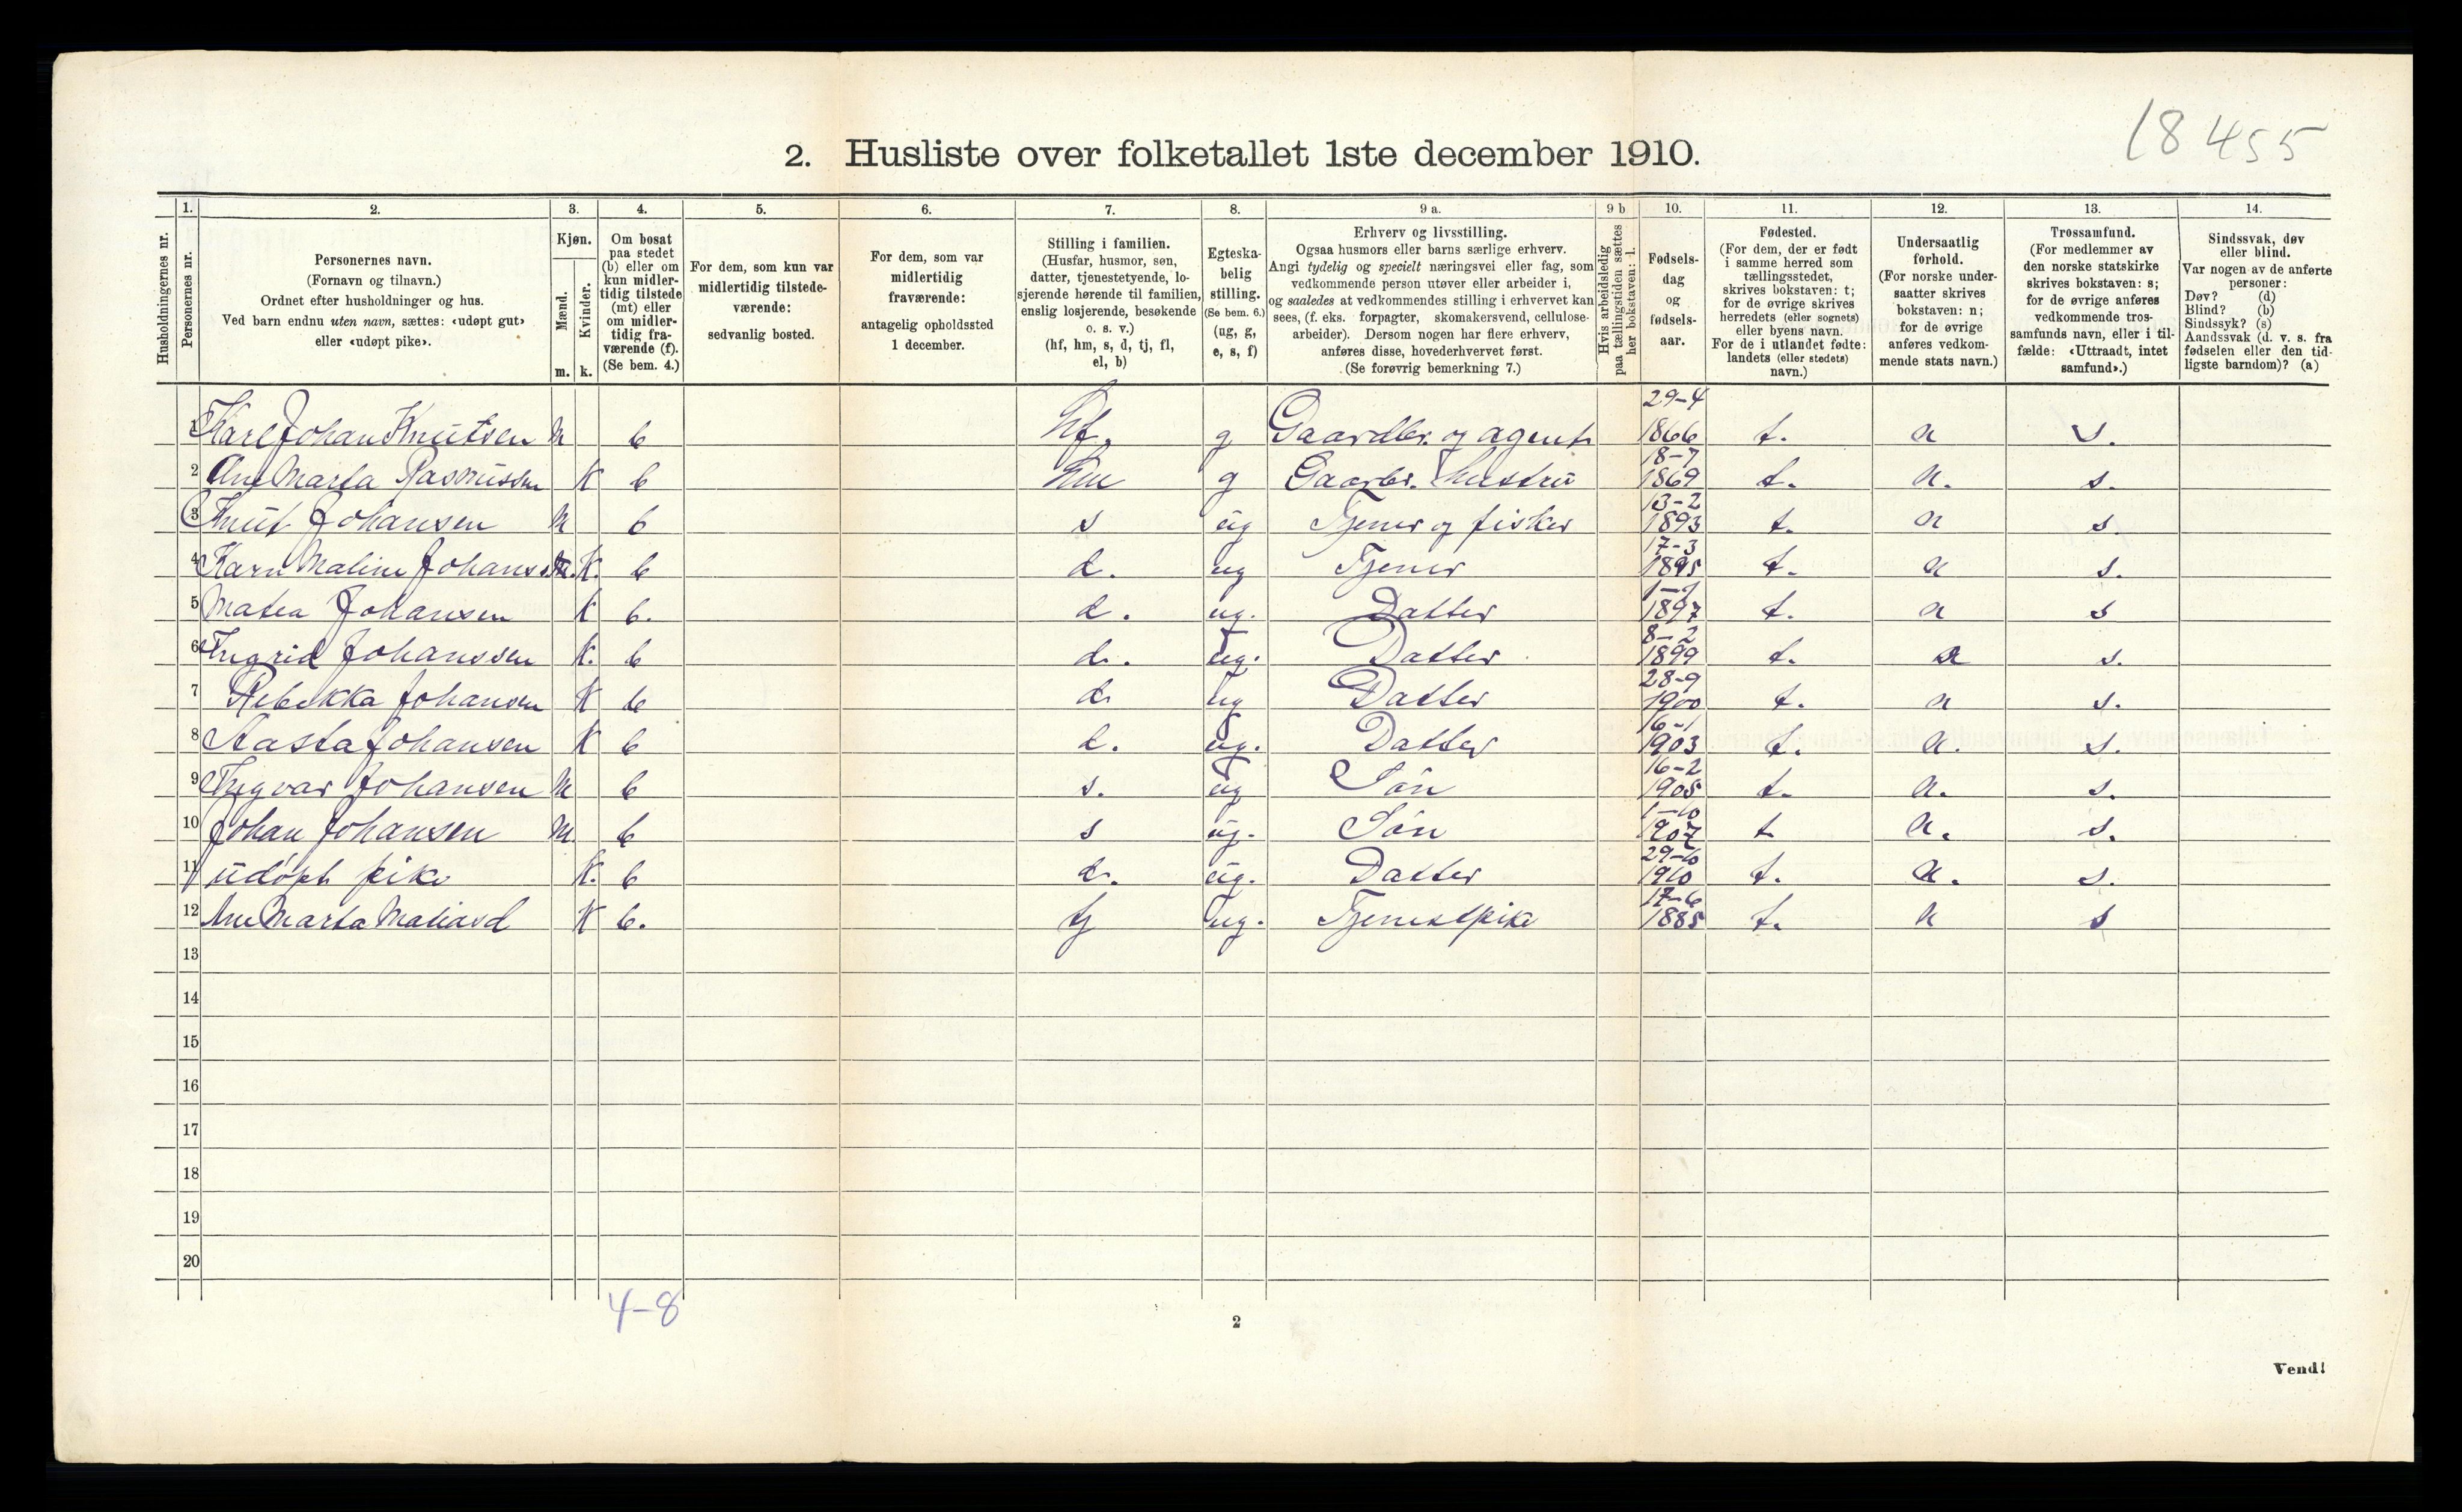 18 455
2. Husliste over folketallet 1ste december 1910.
Husholdningernes nr.
1.
Personernes nr.
2.
Personernes navn.
(Fornavn og tilnavn.)
Ordnet efter husholdninger og hus.
Ved barn endnu uten navn, sættes: «udøpt gut»
eller «udøpt pike».
3.
Kjøn.
Mænd.
m.
Kvinder.
k.
4.
Om bosat
paa stedet
(b) eller om
kun midler-
tidig tilstede
(mt) eller
om midler-
tidig fra-
værende (f).
(Se bem. 4.)
5.
For dem, som kun var
midlertidig tilstede-
værende:
sedvanlig bosted.
6.
For dem, som var
midlertidig
fraværende:
antagelig opholdssted
1 december.
7.
Stilling i familien.
(Husfar, husmor, søn,
datter, tjenestetyende, lo-
sjerende hørende til familien,
enslig losjerende, besøkende
o. s. v.)
(hf, hm, s, d, tj, fl,
el, b)
8.
Egteska-
belig
stilling.
(Se bem. 6.)
(ug, g,
e, s, f)
9 a.
Erhverv og livsstilling.
Ogsaa husmors eller barns særlige erhverv.
Angi tydelig og specielt næringsvei eller fag, som
vedkommende person utøver eller arbeider i,
og saaledes at vedkommendes stilling i erhvervet kan
sees, (f. eks. forpagter, skomakersvend, cellulose-
arbeider). Dersom nogen har flere erhverv,
anføres disse, hovederhvervet først.
(Se forøvrig bemerkning 7.)
9 b
Hvis arbeidsledig
paa tællingstiden sættes
her bokstaven: l.
10.
Fødsels-
dag
og
fødsels-
aar.
11.
Fødested.
(For dem, der er født
i samme herred som
tællingsstedet,
skrives bokstaven: t;
for de øvrige skrives
herredets (eller sognets)
eller byens navn.
For de i utlandet fødte:
landets (eller stedets)
navn.)
12.
Undersaatlig
forhold.
(For norske under-
saatter skrives
bokstaven: n;
for de øvrige
anføres vedkom-
mende stats navn.)
13.
Trossamfund.
(For medlemmer av
den norske statskirke
skrives bokstaven: s;
for de øvrige anføres
vedkommende tros-
samfunds navn, eller i til-
fælde: «Uttraadt, intet
samfund».)
14.
Sindssvak, døv
eller blind.
Var nogen av de anførte
personer:
Døv? (d)
Blind? (b)
Sindssyk? (s)
Aandssvak (d. v. s. fra
fødselen eller den tid-
ligste barndom)? (a)
1 Karl Johan Knutsen M b hf. g Gaardbr. og agent 29-4 1866 t. n s.
2 Ane Marta Rasmussen K b hm g Gaarbr. hustru 18-7 1869 t. n. s.
3 Knut Johansen M b s ug Tjener og fisker 13-2 1893 t. n s.
4 Karn Maline Johanss K. b d. ug Tjener 17-3 1895 t. n s.
5 Matea Johansen K b. d. ug. Datter 1897 t. n s
6 Ingrid Johanssen K. b d. ug. Datter 8-2 1899 t. n s.
7 Rebekka Johansen K b d. ug Datter 28-9 1900 t. n s.
8 Aasta Johansen K b d. ug. Datter 16-1 1903 t. n. s.
9 Ingvar Johansen M b s. ug Sön 16-2 1905 t. n. s.
10 Johan Johansen M b s ug. Sön 1-10 1907 t n. s.
11 udöpt pike K. b d. ug. Datter 29-6 1910 t. n. s.
12 Ane Marta Matiasd K b. tj ug. Tjenestpike 17-6 1885 t. n s
13
14
15
16
17
18
19
20
4-8
2
Vend!